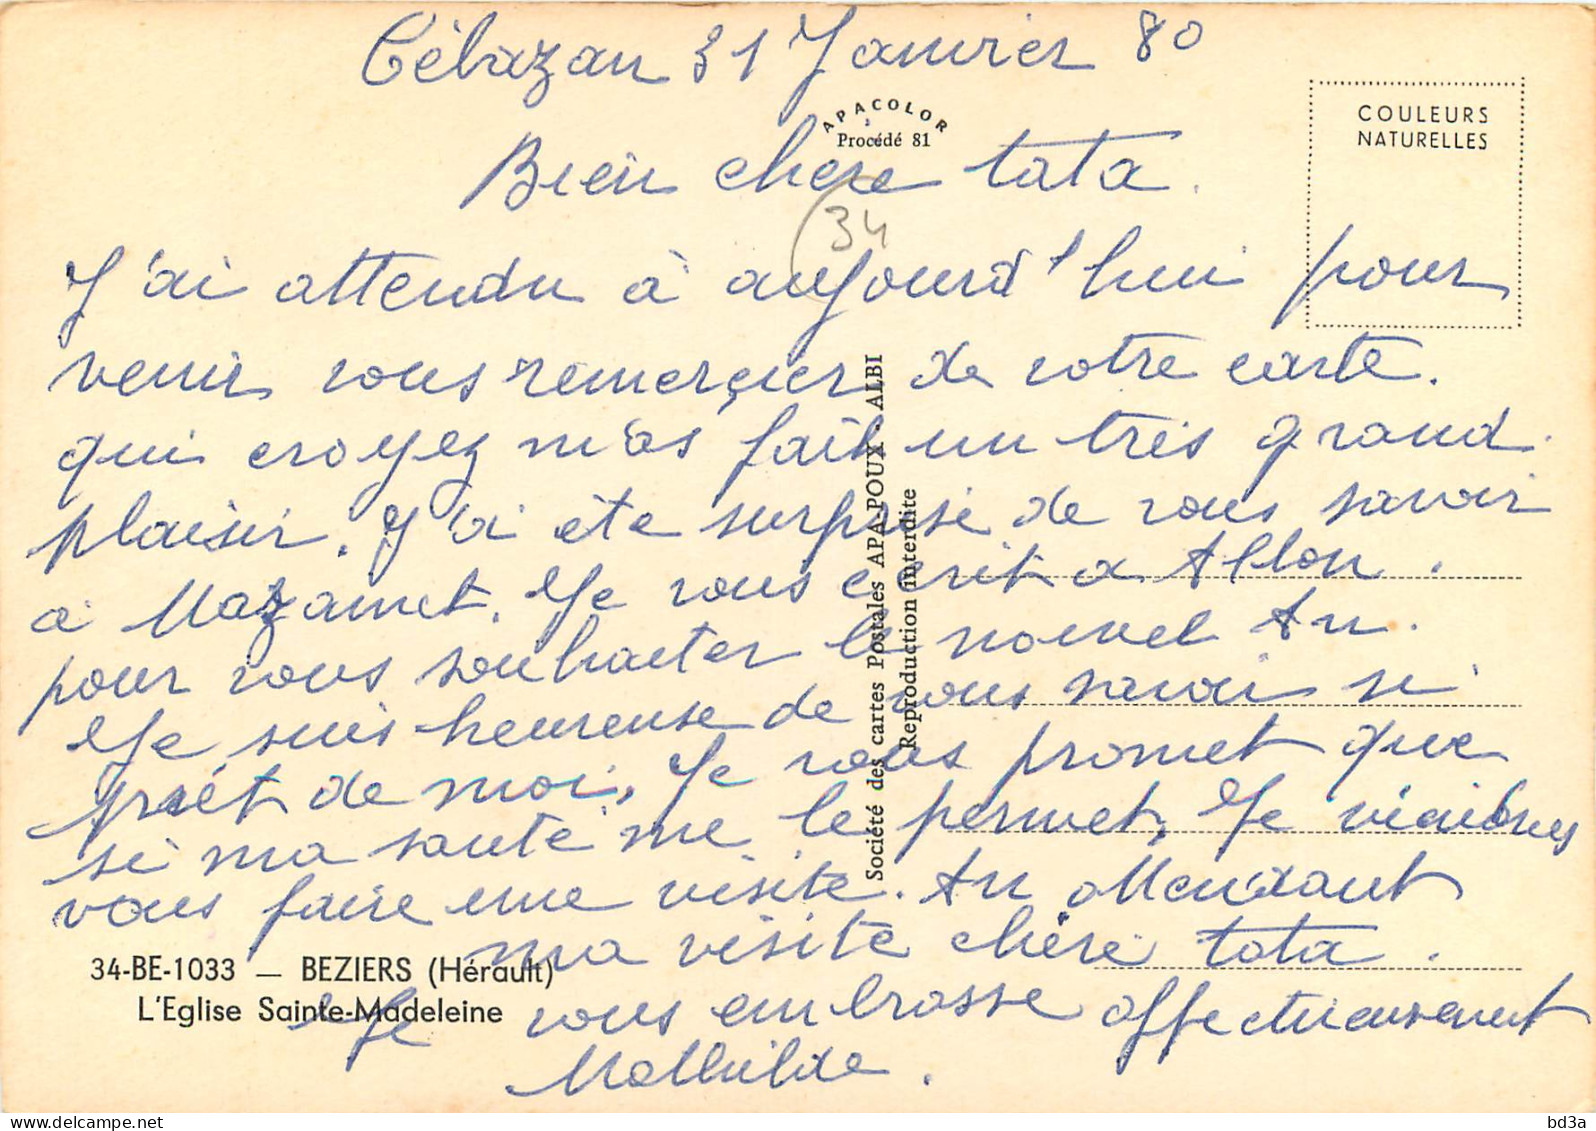 Cébazan 31 Janvier 80
COULEURS
NATURELLES
APACOLOR
Procédé 81
Bien chere tata.
34
J'ai attendu à aujourd'hui pour
venir vous remerçier de votre carte.
qui croyez m'as fait un très grand
plaisir. J'ai été surprise de vous savoir
a Mazamet. Je vous ecrit a Allon.
pour vous souhaiter le nouvel An.
Je suis heureuse de vous savoir si
prêt de moi. Je vous promet que
si ma santé me le permet, Je
vous faire une visite. An attendant
ma visite chère tata.
Je vous embrasse affectueusement
Mathilde.
34-BE-1033 — BEZIERS (Hérault)
L'Eglise Sainte-Madeleine
Société des cartes Postales APA-POUX - ALBI
Reproduction interdite
delcampe.net
bd3a